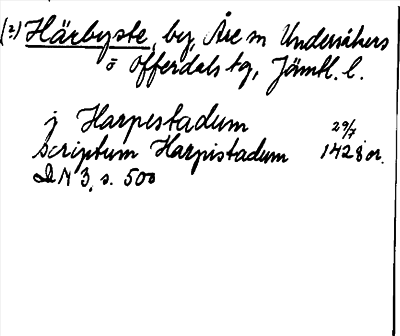 (2) Härbyste, by, Åre sn Undersåkers
o Offerdals tg, Jämtl. l.
j Harpestadum
scriptum Harpistadum 29/7 1428 or.
DN 3, s. 500